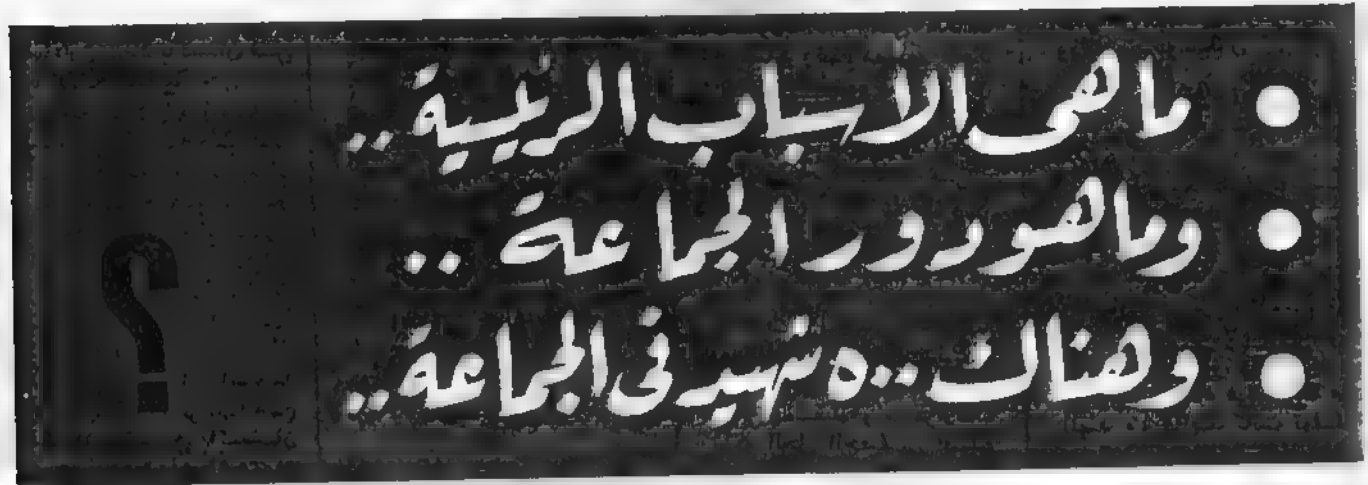 ● ما هى الاسباب الرئيسية ..
● وما هو دور الجماعة ..
● وهناك ٥٠٠ شهيد فى الجماعة ..
؟